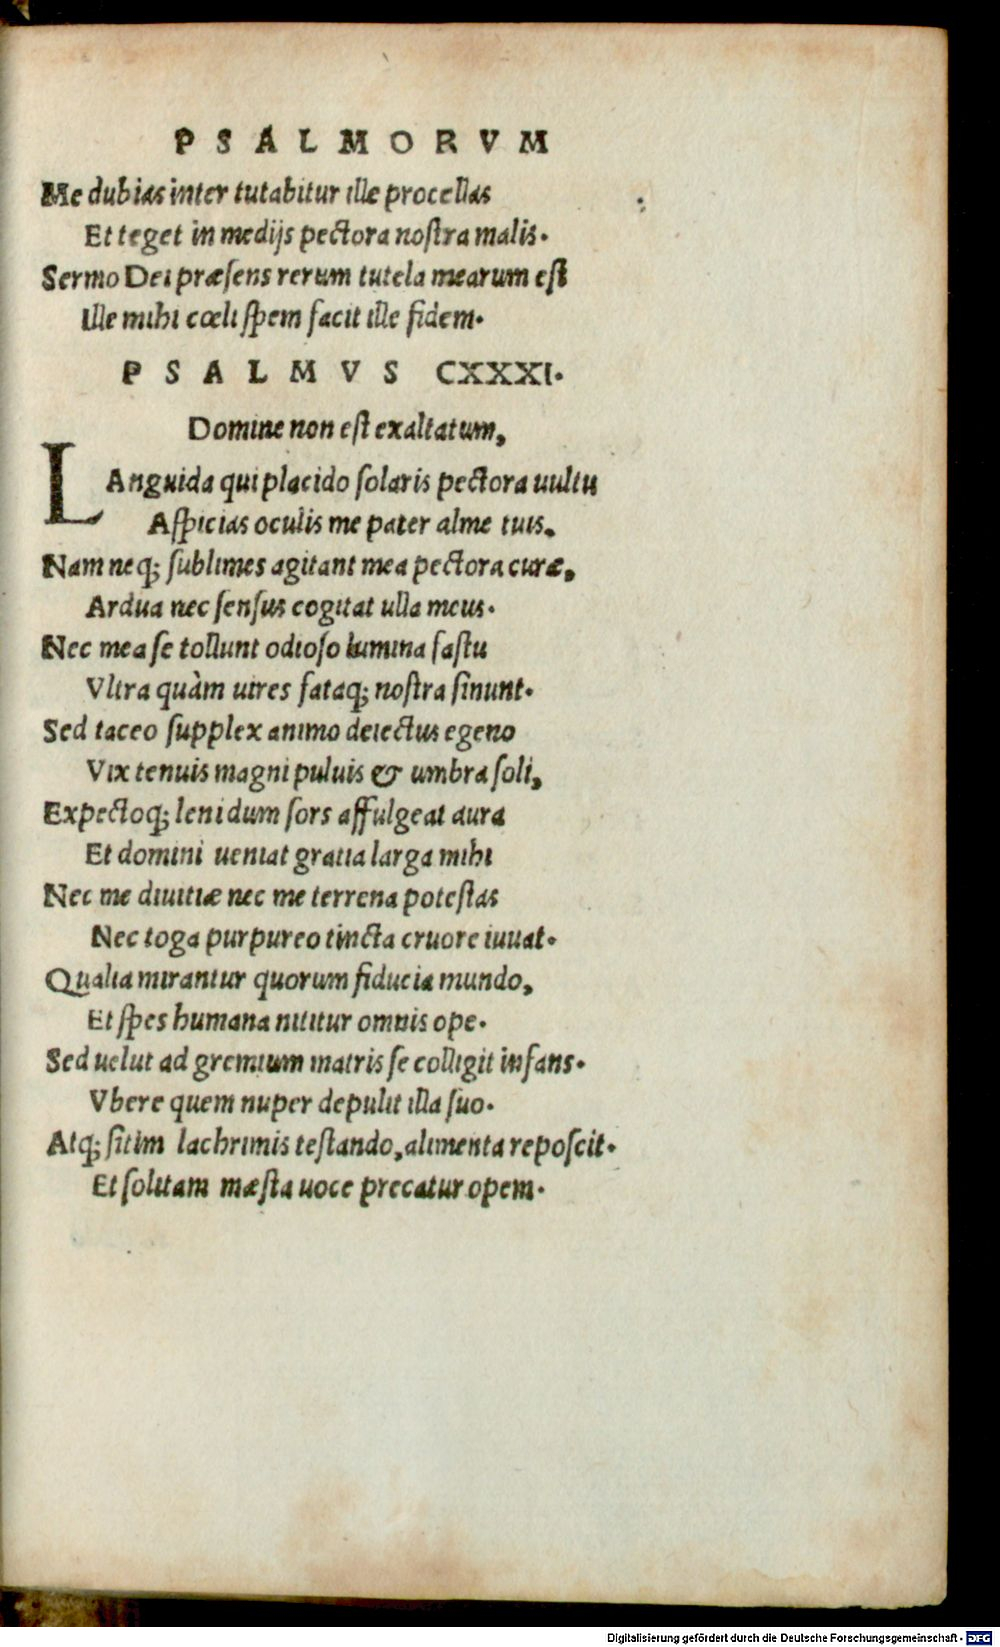 PSALMORVM
Me dubias inter tutabitur ille procellas
Et teget in medijs pectora nostra malis.
Sermo Dei præsens rerum tutela mearum est
Ille mihi cœli spem facit ille fidem.
PSALMVS CXXXI.
Domine non est exaltatum,
LAnguida qui placido solaris pectora uultu
Aspicias oculis me pater alme tuis.
Nam neq; sublimes agitant mea pectora curæ,
Ardua nec sensus cogitat ulla meus.
Nec mea se tollunt odioso lumina fastu
Vltra quàm uires fataq; nostra sinunt.
Sed taceo supplex animo deiectus egeno
Vix tenuis magni puluis & umbra soli,
Expectoq; leni dum sors affulgeat aura
Et domini ueniat gratia larga mihi
Nec me diuitiæ nec me terrena potestas
Nec toga purpureo tincta cruore iuuat.
Qualia mirantur quorum fiducia mundo,
Et spes humana nititur omnis ope.
Sed uelut ad gremium matris se colligit infans.
Vbere quem nuper depulit illa suo.
Atq; sitim lachrimis testando, alimenta reposcit.
Et solitam mæsta uoce precatur opem.
Digitalisierung gefördert durch die Deutsche Forschungsgemeinschaft - DFG